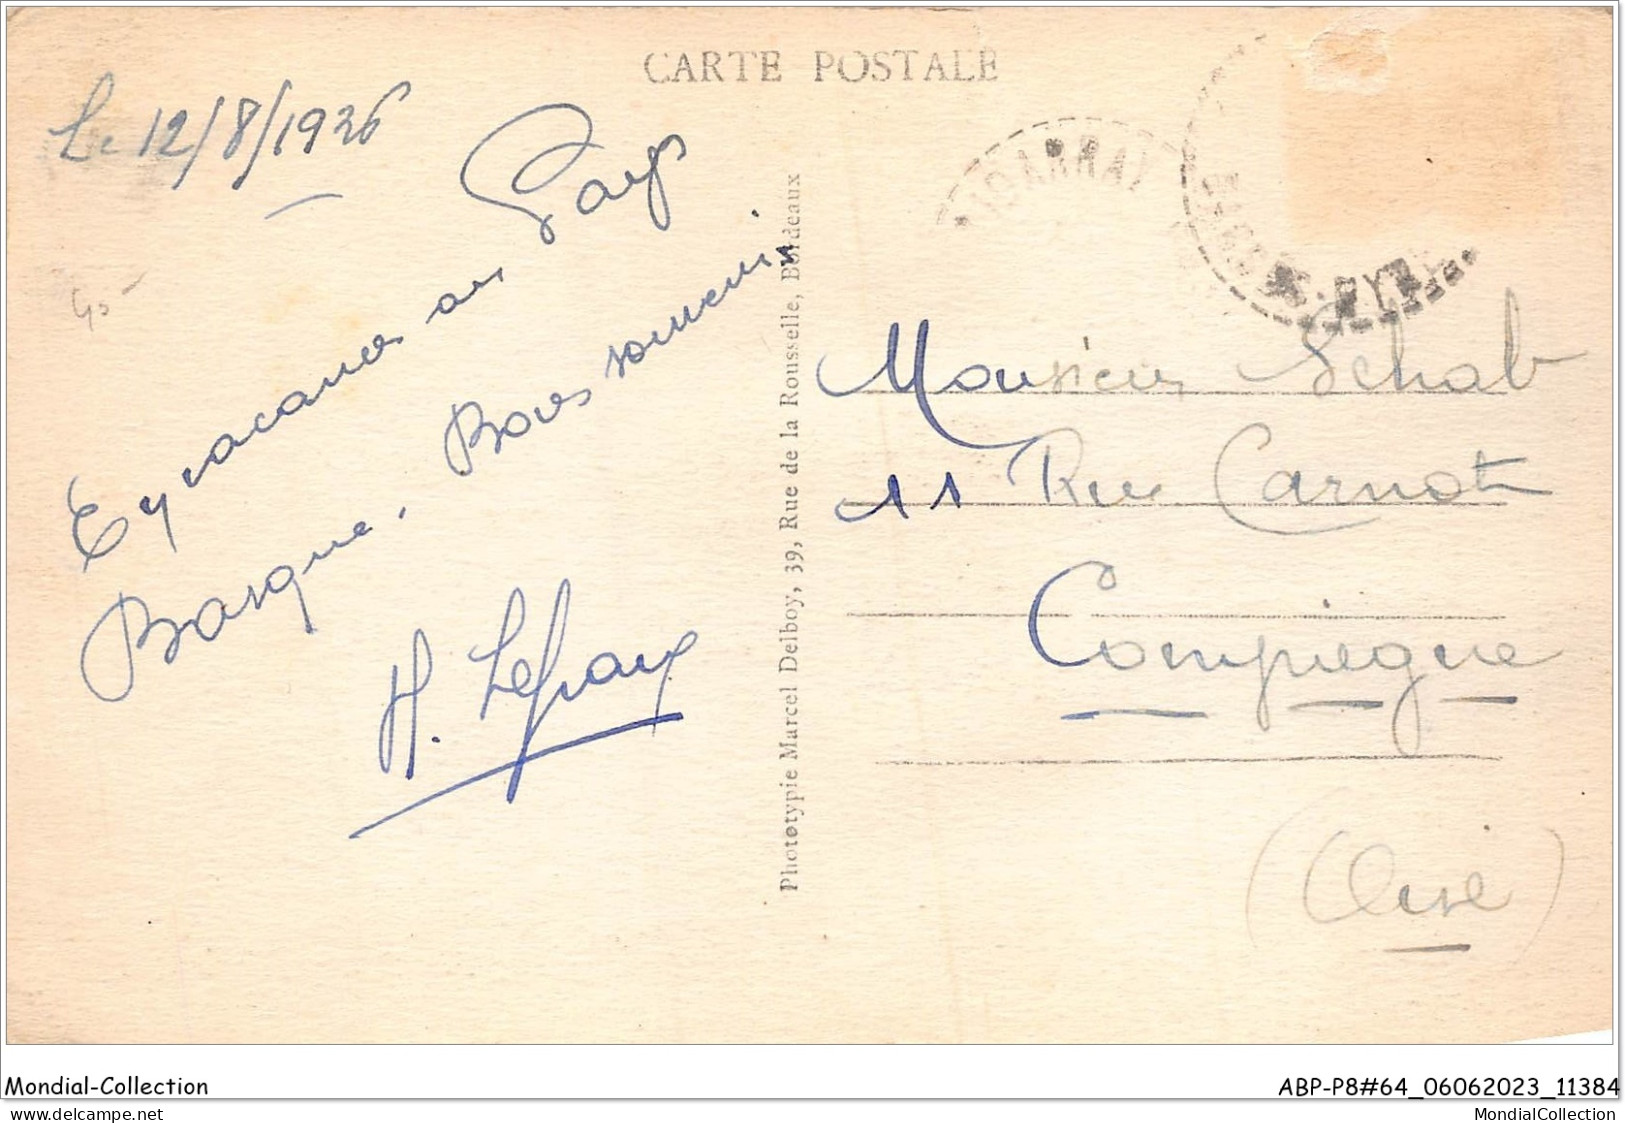 CARTE POSTALE
Le 12/8/1936
40-
En vacances au Pays
Basque. Bons souvenirs
H. Lefraux
Phototypie Marcel Delboy, 39, Rue de la Rousselle, Bordeaux
BIDARRAY
BASSES-PYRÉNÉES
Monsieur Schab
11 Rue Carnot
Compiegne
(Oise)
Mondial-Collection
ABP-P8#64_06062023_11384
www.delcampe.net
MondialCollection